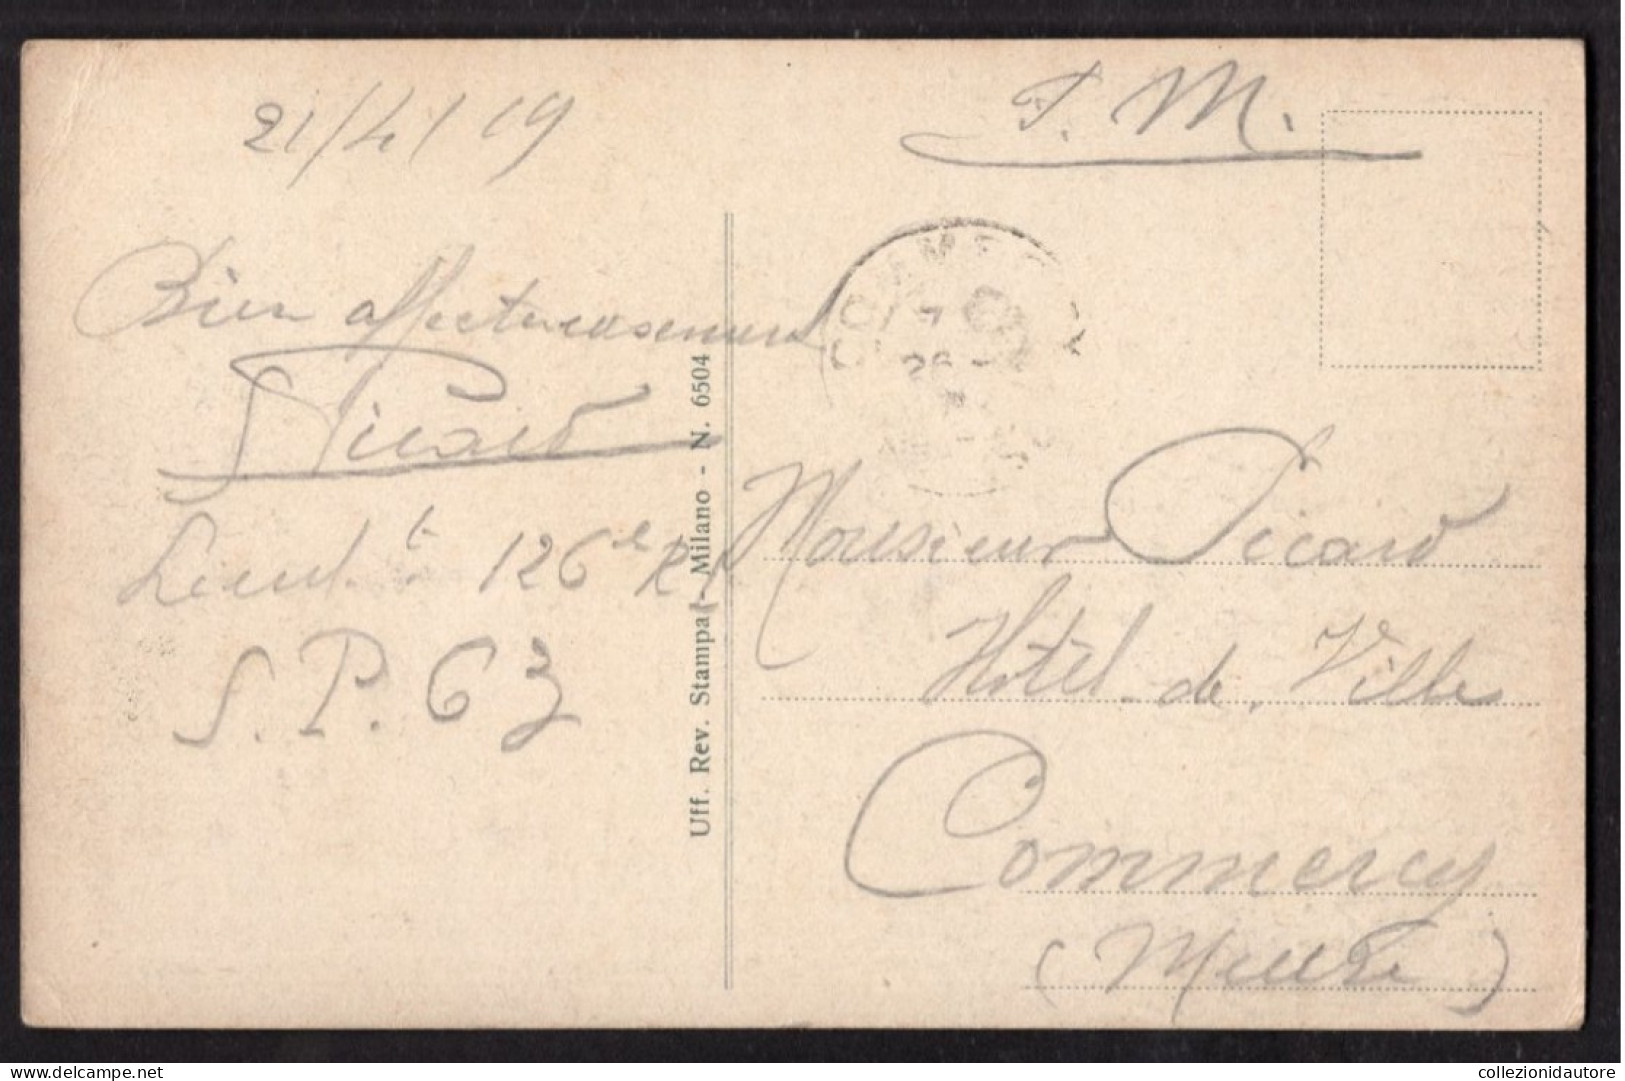 21/4/19
Bien affectueusement
Picard
Lieut.t 126e R
S. P. 63
Uff. Rev. Stampa - Milano - N. 6504
F. M.
COMMERCY
Monsieur Picard
Hôtel de Ville
Commercy
(Meuse)
www.delcampe.net
collezionidautore